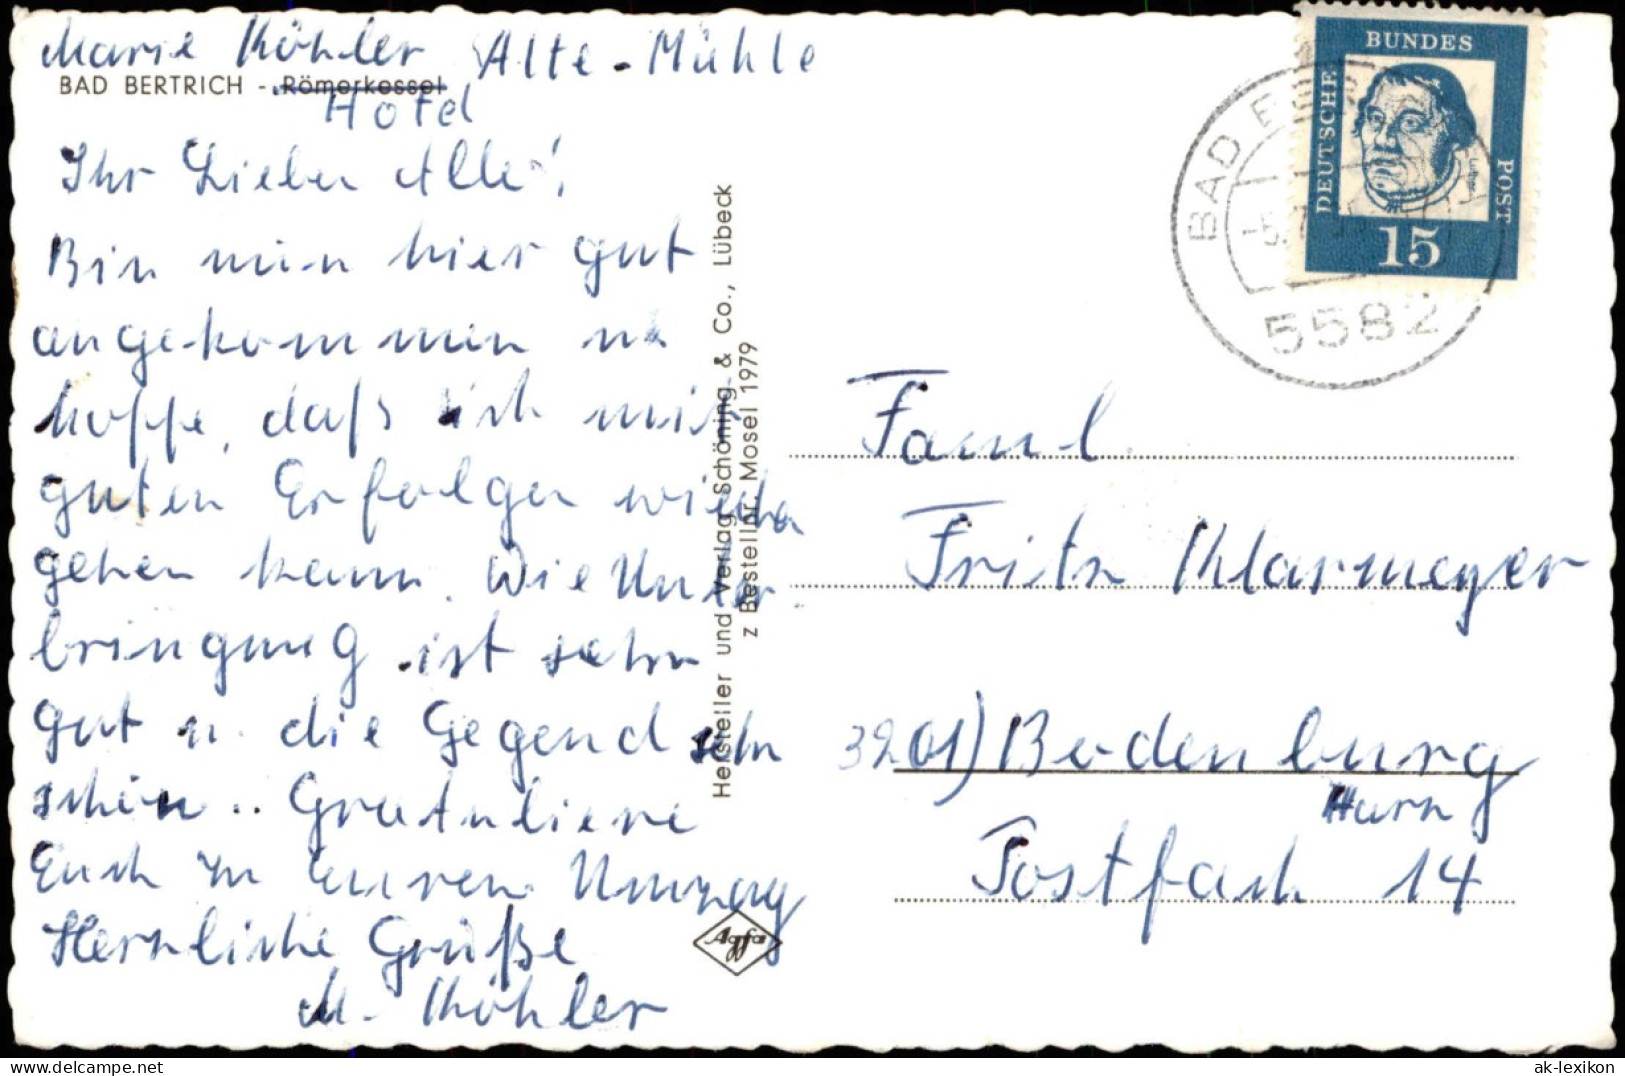 Marie Köhler Alte-Mühle
BAD BERTRICH - Römerkessel
Hotel
Ihr Lieben Alle!
Bin nun hier gut
angekommen u.
hoffe, daß ich mit
guten Erfolgen wieder
gehen kann. Die Unter-
bringung ist sehr
gut u. die Gegend sehr
schön.. Gratuliere
Euch zu Euren Umzug
Herzliche Grüße
M. Köhler
Hersteller und Verlag Schöning & Co., Lübeck
z Bestellnr. Mosel 1979
Agfa
BUNDES
DEUTSCHE
POST
Luther
15
BAD BERTRICH
5582
Faml.
Fritz Klarmeyer
3201) Bodenburg
Harz
Postfach 14
www.ansichtskarten-lexikon.de
ak-lexikon